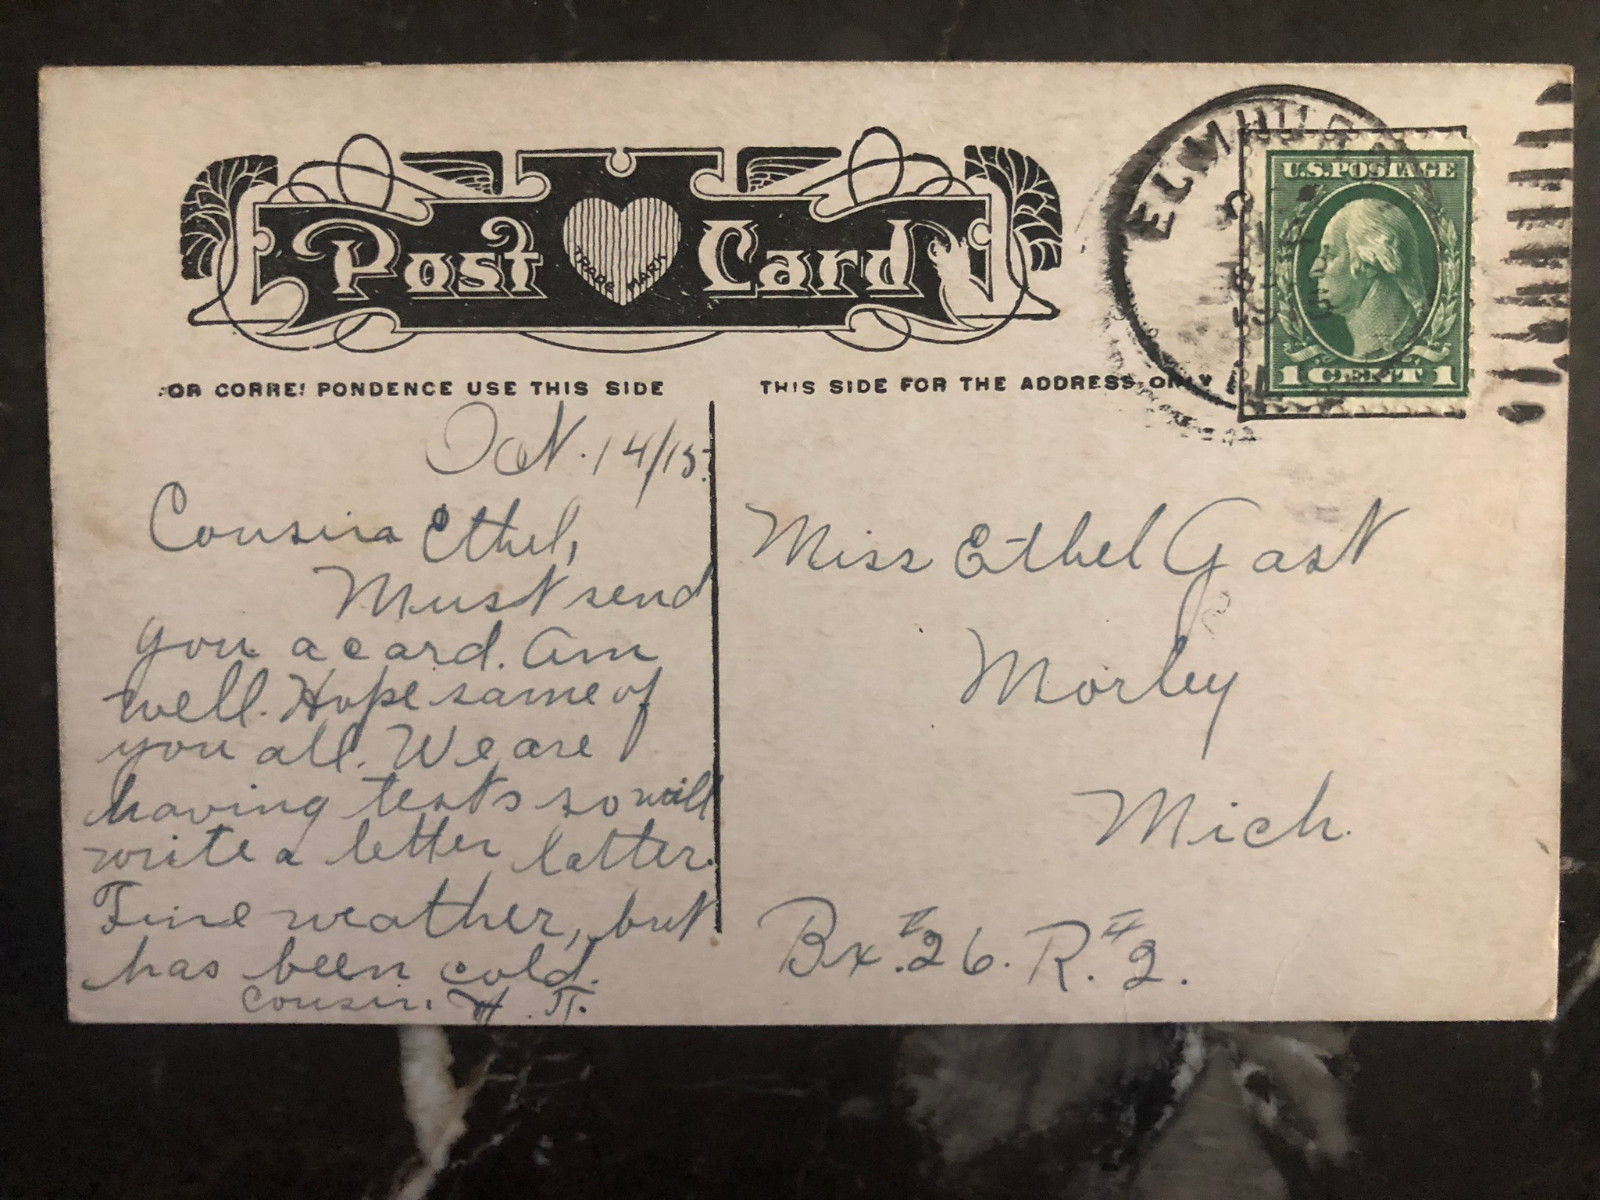 Post Card
TRADE MARK
OR CORRE PONDENCE USE THIS SIDE
THIS SIDE FOR THE ADDRESS ONLY
ELMHURST
U.S. POSTAGE
1 CENT 1
Oct. 14/15.
Cousin Ethel,
Must send
you a card. Am
well. Hope same of
you all. We are
having tests so will
write a letter latter.
Fine weather, but
has been cold.
Cousin. H. F.
Miss Ethel Gast
Morley
Mich.
Bx. #26. R. #2.